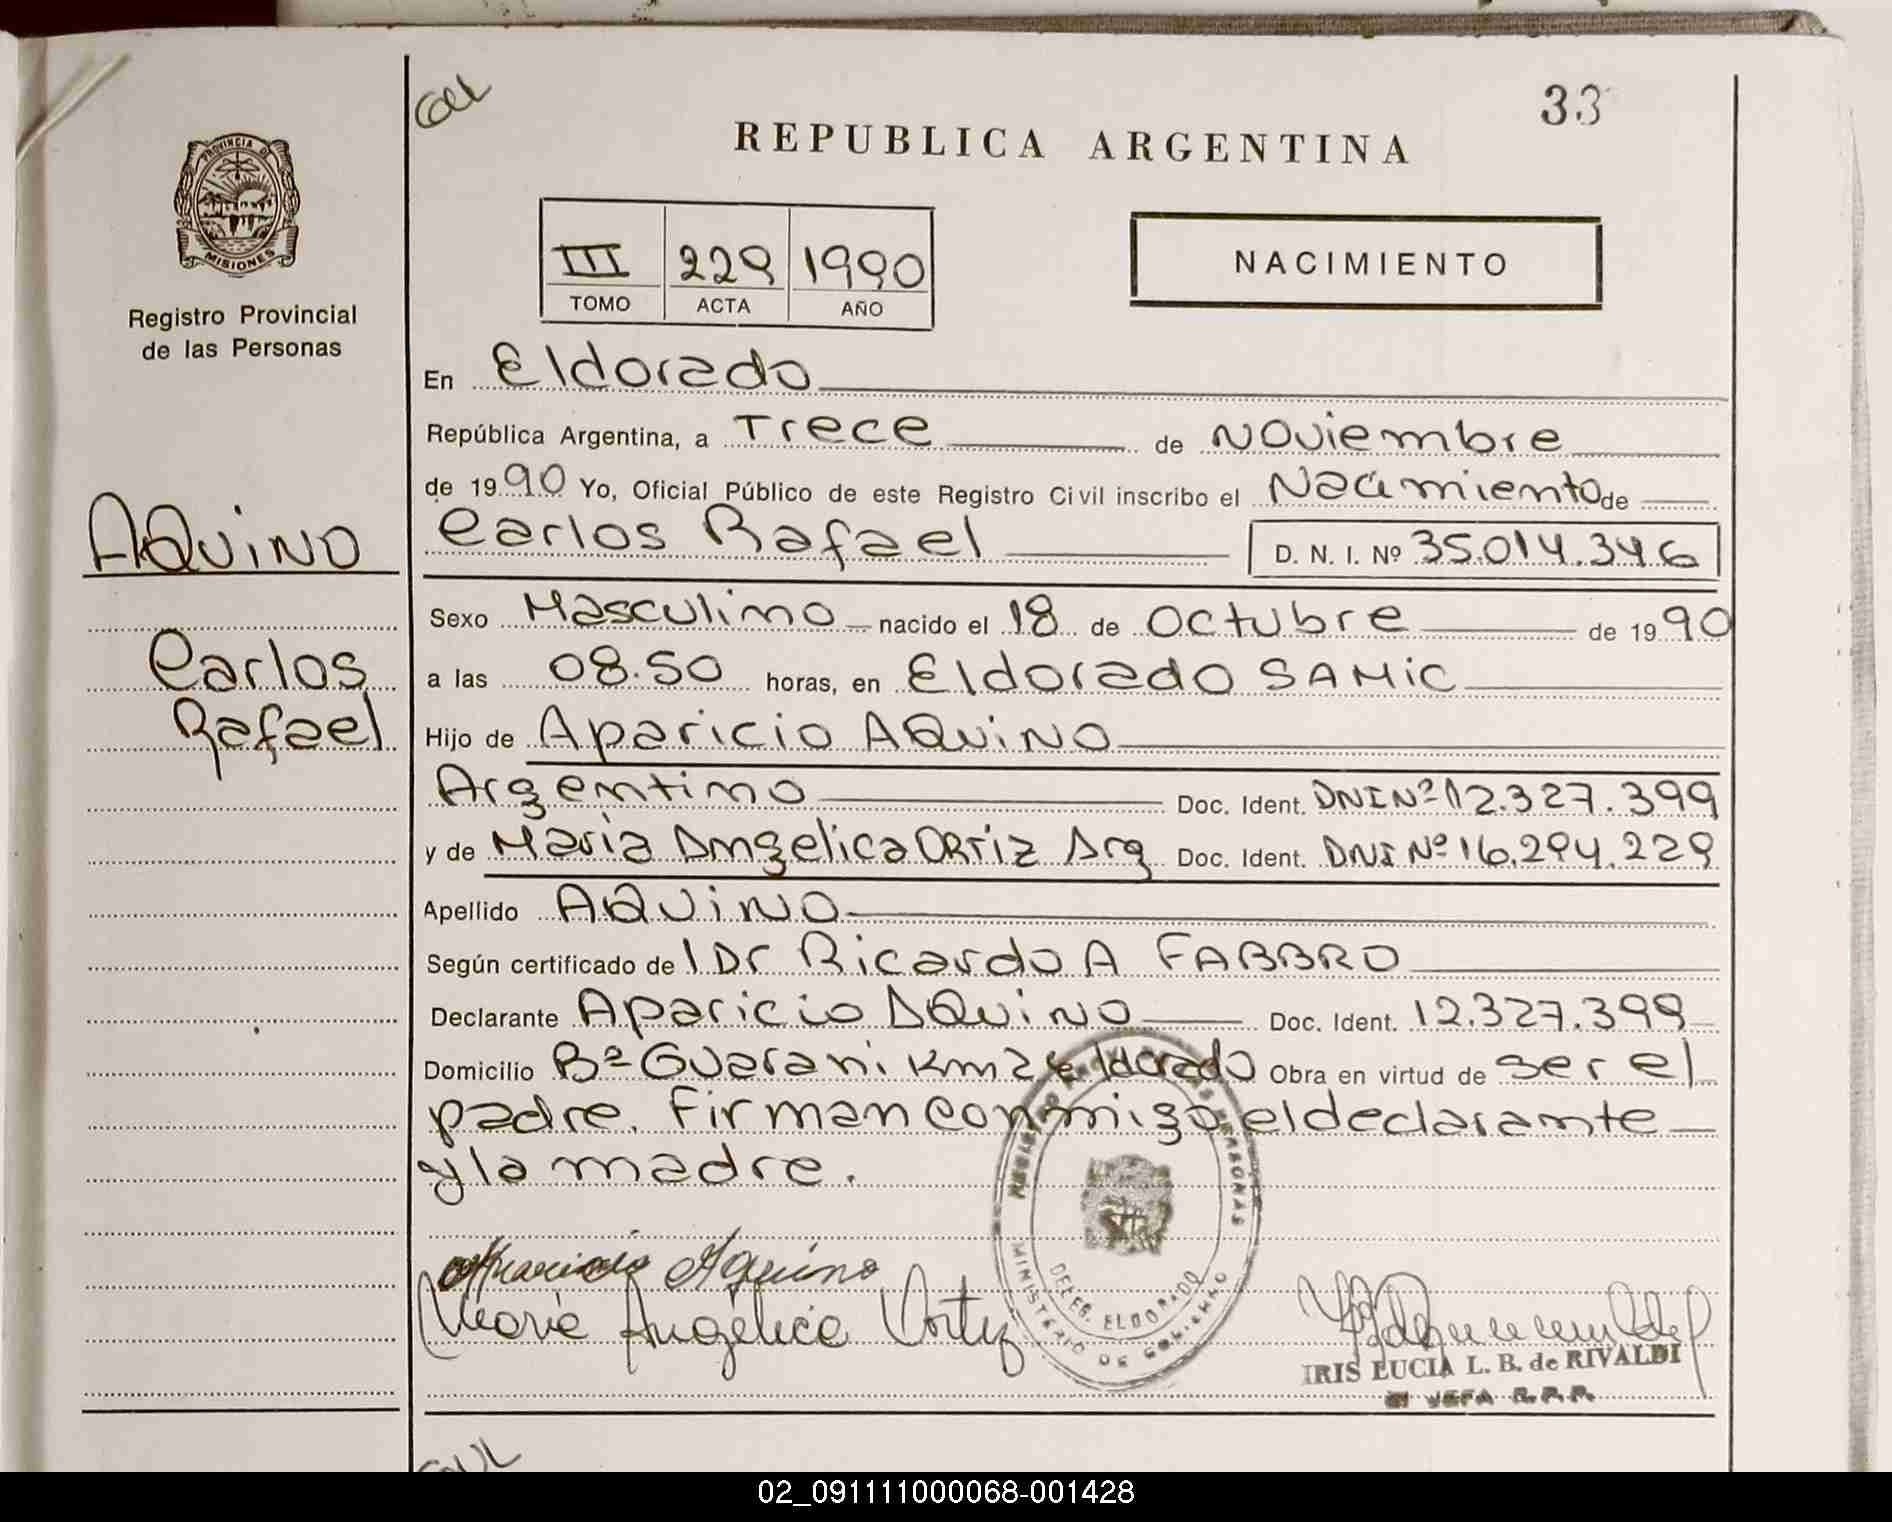 33
REPUBLICA ARGENTINA
PROVINCIA DE
MISIONES
Registro Provincial
de las Personas
III 229 1990
TOMO ACTA AÑO
NACIMIENTO
En Eldorado
República Argentina, a Trece de Noviembre
de 1990 Yo, Oficial Público de este Registro Civil inscribo el Nacimiento de
Carlos Rafael D. N. I. Nº 35.014.346
AQUINO
Carlos
Rafael
Sexo Masculino nacido el 18 de Octubre de 1990
a las 08.50 horas, en Eldorado SAMIC
Hijo de Aparicio AQUINO
Argentino Doc. Ident. DNI Nº 12.327.399
y de Maria Angelica ORTIZ Arg Doc. Ident. DNI Nº 16.294.229
Apellido AQUINO
Según certificado del Dr Ricardo A FABBRO
Declarante Aparicio AQUINO Doc. Ident. 12.327.399
Domicilio Bº Guarani Km 2 Eldorado Obra en virtud de ser el
padre. Firman conmigo el declarante
y la madre.
Aparicio Aquino
Maria Angélica Ortiz
MINISTERIO DE GOBIERNO
DELEG. ELDORADO
IRIS LUCIA L. B. de RIVALDI
JEFA R.P.P.
02_091111000068-001428